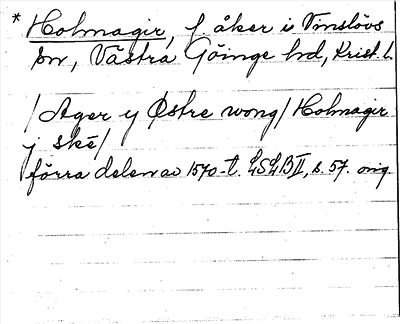 * Holmagir, f. åker i Vinslövs
sn, Västra Göinge hd, Krist. l.
/Ager y Østre wong/Holmagir
j skē/
förra delen av 1570-t. LSLB II, s. 57. orig.